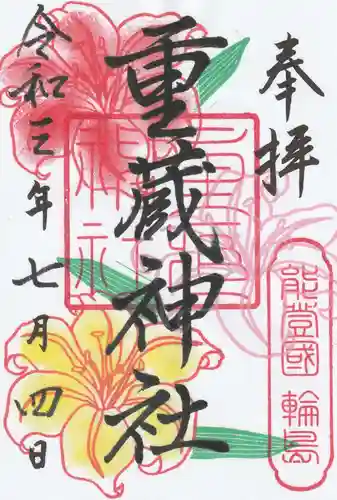 奉拝
重蔵神社
令和三年七月四日
能登國輪島